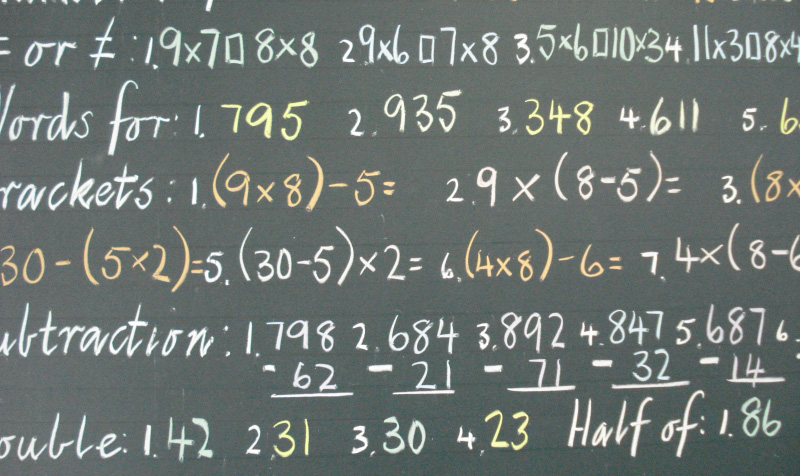 = or ≠ : 1. 9×7 □ 8×8 2 9×6 □ 7×8 3. 5×6 □ 10×3 4. 11×3 □ 8×4
Words for: 1. 795 2. 935 3. 348 4. 611 5. 6
rackets: 1. (9×8)-5= 2. 9 × (8-5)= 3. (8×
30-(5×2)= 5. (30-5)×2= 6. (4×8)-6= 7. 4×(8-6
ubtraction: 1. 798 2. 684 3. 892 4. 847 5. 687 6.
- 62 - 21 - 71 - 32 - 14
ouble: 1. 42 2 31 3. 30 4. 23 Half of: 1. 86